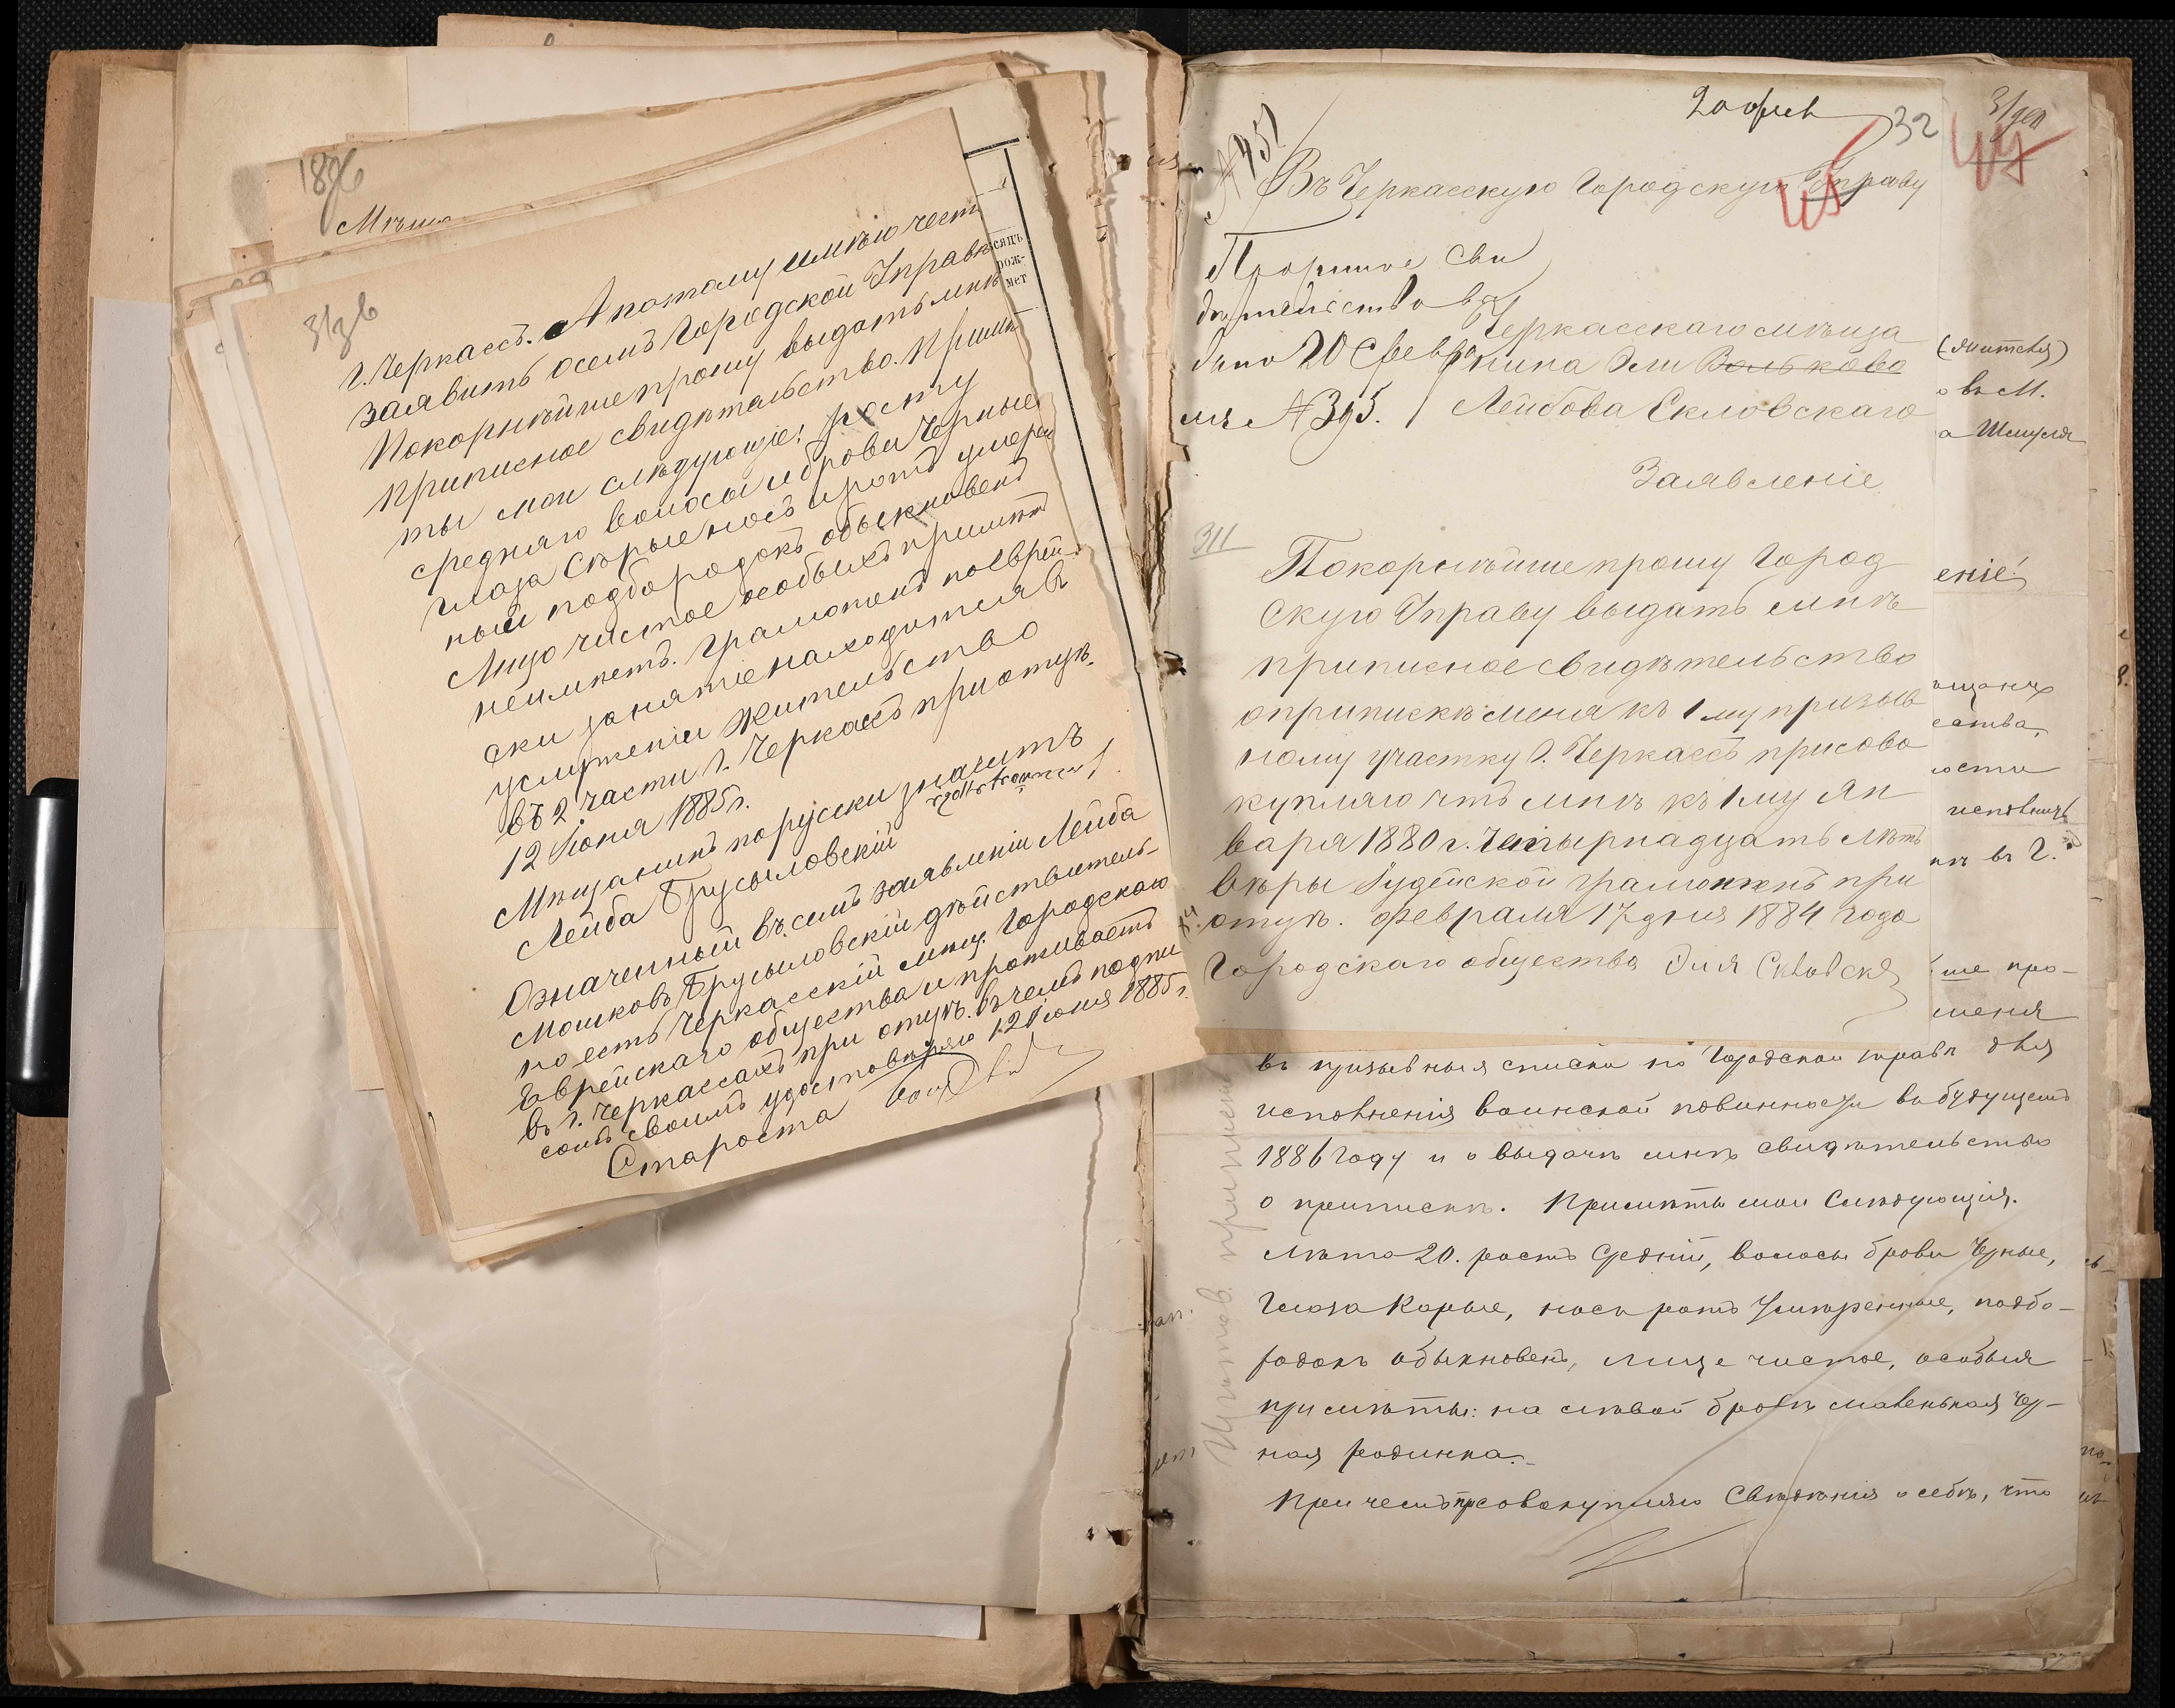 1876
Мѣща
313 б
г. Черкассъ. А потому имѣю чест
заявить о семъ Городской Управѣ
Покорнѣйше прошу выдать мнѣ
приписное свидѣтельство. Примѣ
ты мои слѣдующіе: росту
средняго волосы и брови черные
глаза сѣрые носъ и ротъ умерен
ный подбородокъ обыкновенъ
Лицо чистое особыхъ примѣтъ
неимѣетъ. Грамотенъ поеврей-
ски занятіе находится въ
услуженіи жительство
въ 2 части г. Черкассъ при отцѣ.
12 Іюня 1885 г.
Мѣщанинъ порусски значитъ
Лейба Брусиловскій
Означенный въ семъ заявленіи Лейба
Мошковъ Брусиловскій дѣйствитель-
но есть Черкасскій мѣщ. Городскаго
Еврейскаго общества и проживаетъ
въ г. Черкассахъ при отцѣ. въ чемъ подпи
сомъ своимъ удостовѣряю 12 Іюня 1885 г.
Староста
сяцъ
рож-
мет
20 фев
32
№ 451
Въ Черкасскую Городскую Управу
Приписное сви
дѣтельство вы
дано 20 февра
ля № 395.
Черкасскаго мѣща
нина Эли Волькова
Лейбова Скловскаго
Заявленіе
311
Покорнѣйше прошу Город
скую Управу выдать мнѣ
приписное свидѣтельство
о припискѣ меня къ 1му призыв
ному участку г. Черкассъ присово
купляю что мнѣ къ 1му Ян
варя 1880 г. Четырнадцать лѣтъ
вѣры Іудейской грамотенъ при
отцѣ. Февраля 17 дня 1884 года
Городскаго общества Эля Скловскъ
о въ М.
а Шмуля
еніе
ества,
ости
въ г.
ше про-
меня
въ призывныя списки по Городской управѣ для
исполненія воинской повинности въ будущемъ
1886 году и о выдачѣ мнѣ свидѣтельства
о припискѣ. Примѣты мои слѣдующія.
Лѣта 20. ростъ средній, волосы брови черные,
глаза карые, носъ ротъ умѣренные, подбо-
родокъ обыкновенъ, лице чистое, особыя
примѣты: на лѣвой бровѣ маленькая чер-
ная родинка.
При чемъ присовокупляю свѣдѣнія о себѣ, что